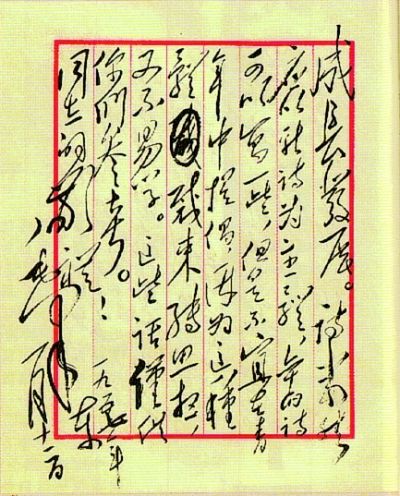 成长发展。诗当然
应以新诗为主体,旧诗
可以写一些,但是不宜在青
年中提倡,因为这种
体裁束缚思想,
又不易学。这些话仅供
你们参考。
同志的敬礼!
毛泽东
一九五七年
一月十二日